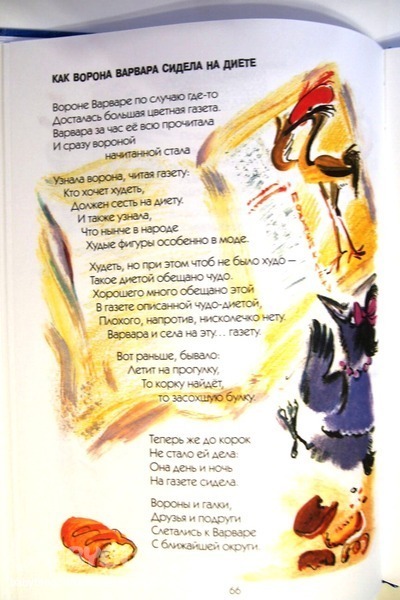 КАК ВОРОНА ВАРВАРА СИДЕЛА НА ДИЕТЕ
Вороне Варваре по случаю где-то
Досталась большая цветная газета.
Варвара за час её всю прочитала
И сразу вороной
начитанной стала
Узнала ворона, читая газету:
Кто хочет худеть,
Должен сесть на диету.
И также узнала,
Что нынче в народе
Худые фигуры особенно в моде.
Худеть, но при этом чтоб не было худо –
Такое диетой обещано чудо.
Хорошего много обещано этой
В газете описанной чудо-диетой,
Плохого, напротив, нисколечко нет.
Варвара и села на эту... газету.
Вот раньше, бывало:
Летит на прогулку,
То корку найдёт,
то засохшую булку.
Теперь же до корок
Не стало ей дела:
Она день и ночь
На газете сидела.
Вороны и галки,
Друзья и подруги
Слетались к Варваре
С ближайшей округи.
66